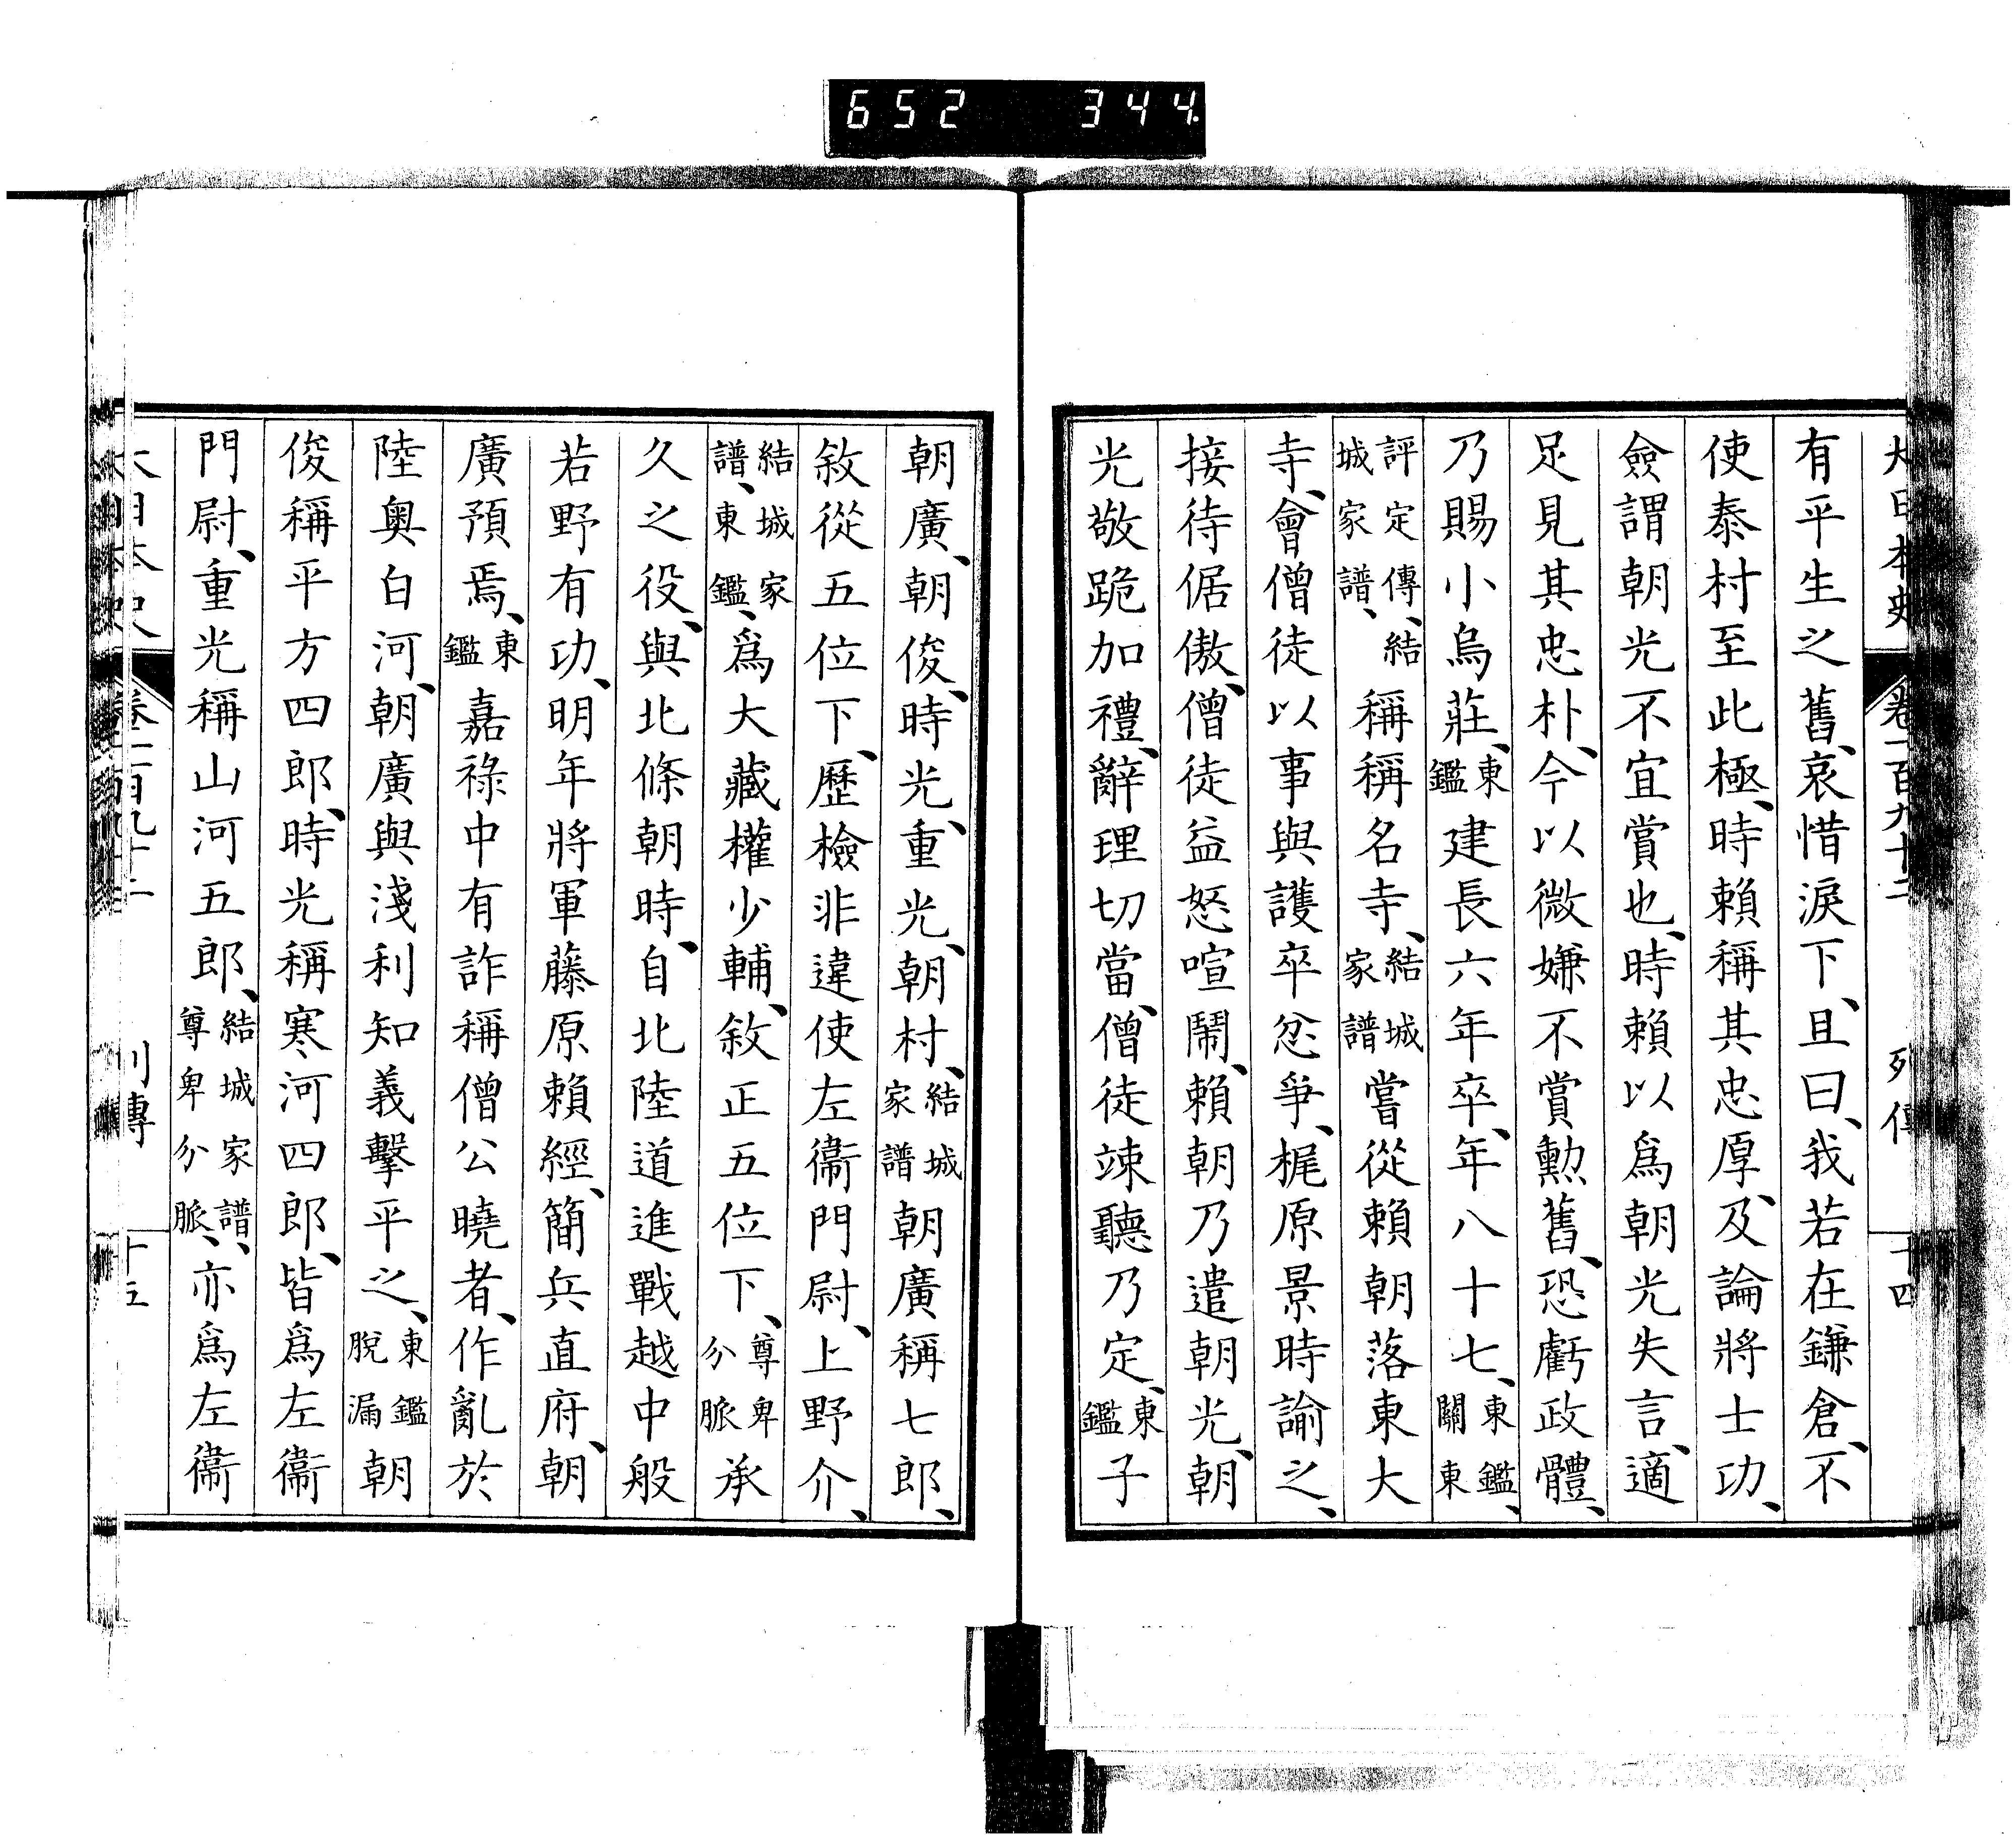 652 344.
大日本史 卷一百九十二 列傳 十四
有平生之舊、哀惜淚下、且曰、我若在鎌倉、不
使泰村至此極、時賴稱其忠厚、及論將士功、
僉謂朝光不宜賞也、時賴以爲朝光失言、適
足見其忠朴、今以微嫌不賞勲舊、恐虧政體、
乃賜小烏莊、東鑑建長六年卒、年八十七、東鑑、關東
評定傳、結城家譜、稱稱名寺、結城家譜嘗從賴朝落東大
寺、會僧徒以事與護卒忿爭、梶原景時諭之、
接待倨傲、僧徒益怒喧鬧、賴朝乃遣朝光、朝
光敬跪加禮、辭理切當、僧徒竦聽乃定、東鑑子
朝廣、朝俊、時光、重光、朝村、結城家譜朝廣稱七郎、
敘從五位下、歷檢非違使左衞門尉、上野介、
結城家譜、東鑑、爲大藏權少輔、敘正五位下、尊卑分脈承
久之役、與北條朝時、自北陸道進戰越中般
若野有功、明年將軍藤原賴經、簡兵直府、朝
廣預焉、東鑑嘉祿中有詐稱僧公曉者、作亂於
陸奥白河、朝廣與淺利知義擊平之、東鑑脫漏朝
俊稱平方四郎、時光稱寒河四郎、皆爲左衞
門尉、重光稱山河五郎、結城家譜、尊卑分脈、亦爲左衞
大日本史 卷一百九十二 列傳 十五